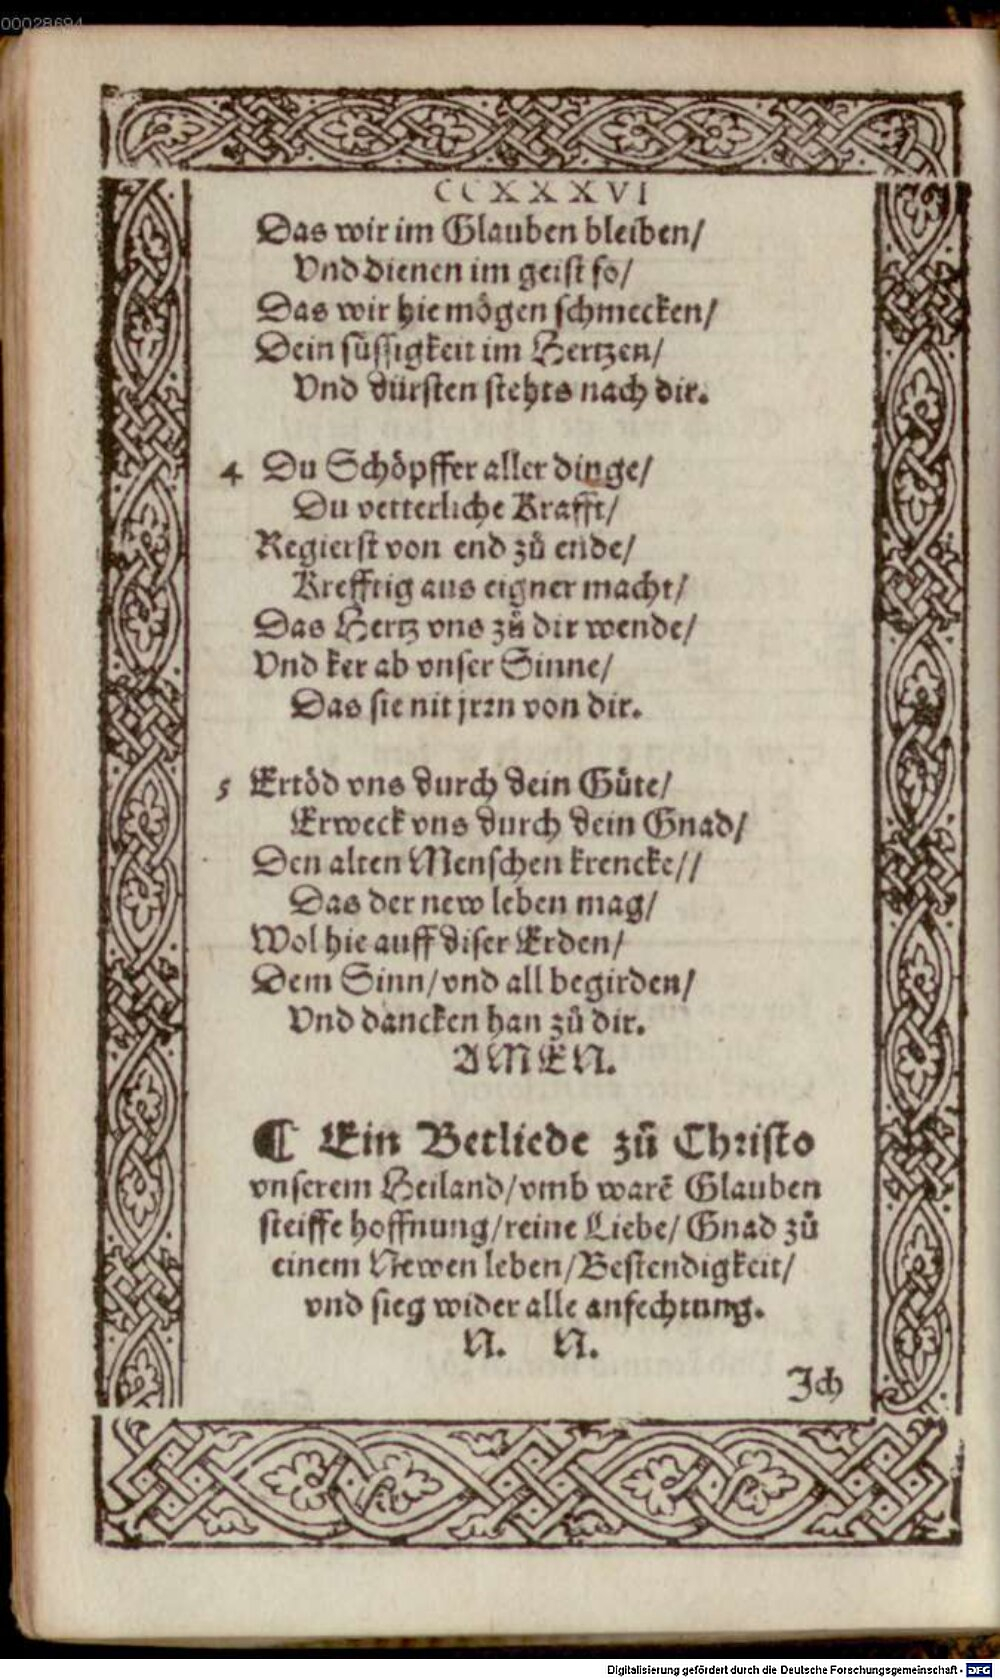 00028694
CCXXXVI
Das wir im Glauben bleiben/
Vnd dienen im geist so/
Das wir hie mögen schmecken/
Dein süssigkeit im Hertzen/
Vnd dürsten stehts nach dir.
4 Du Schöpffer aller dinge/
Du vetterliche Krafft/
Regierst von end zů ende/
Krefftig aus eigner macht/
Das Hertz vns zů dir wende/
Vnd ker ab vnser Sinne/
Das sie nit jrꝛn von dir.
5 Ertöd vns durch dein Gůte/
Erweck vns durch dein Gnad/
Den alten Menschen krencke//
Das der new leben mag/
Wol hie auff diser Erden/
Dem Sinn/vnd all begirden/
Vnd dancken han zů dir.
AMEN.
¶ Ein Betliede zů Chꝛisto
vnserem Heiland/vmb warē Glauben
steiffe hoffnung/reine Liebe/Gnad zů
einem Newen leben/Bestendigkeit/
vnd sieg wider alle anfechtung.
N. N.
Jch
Digitalisierung gefördert durch die Deutsche Forschungsgemeinschaft - DFG